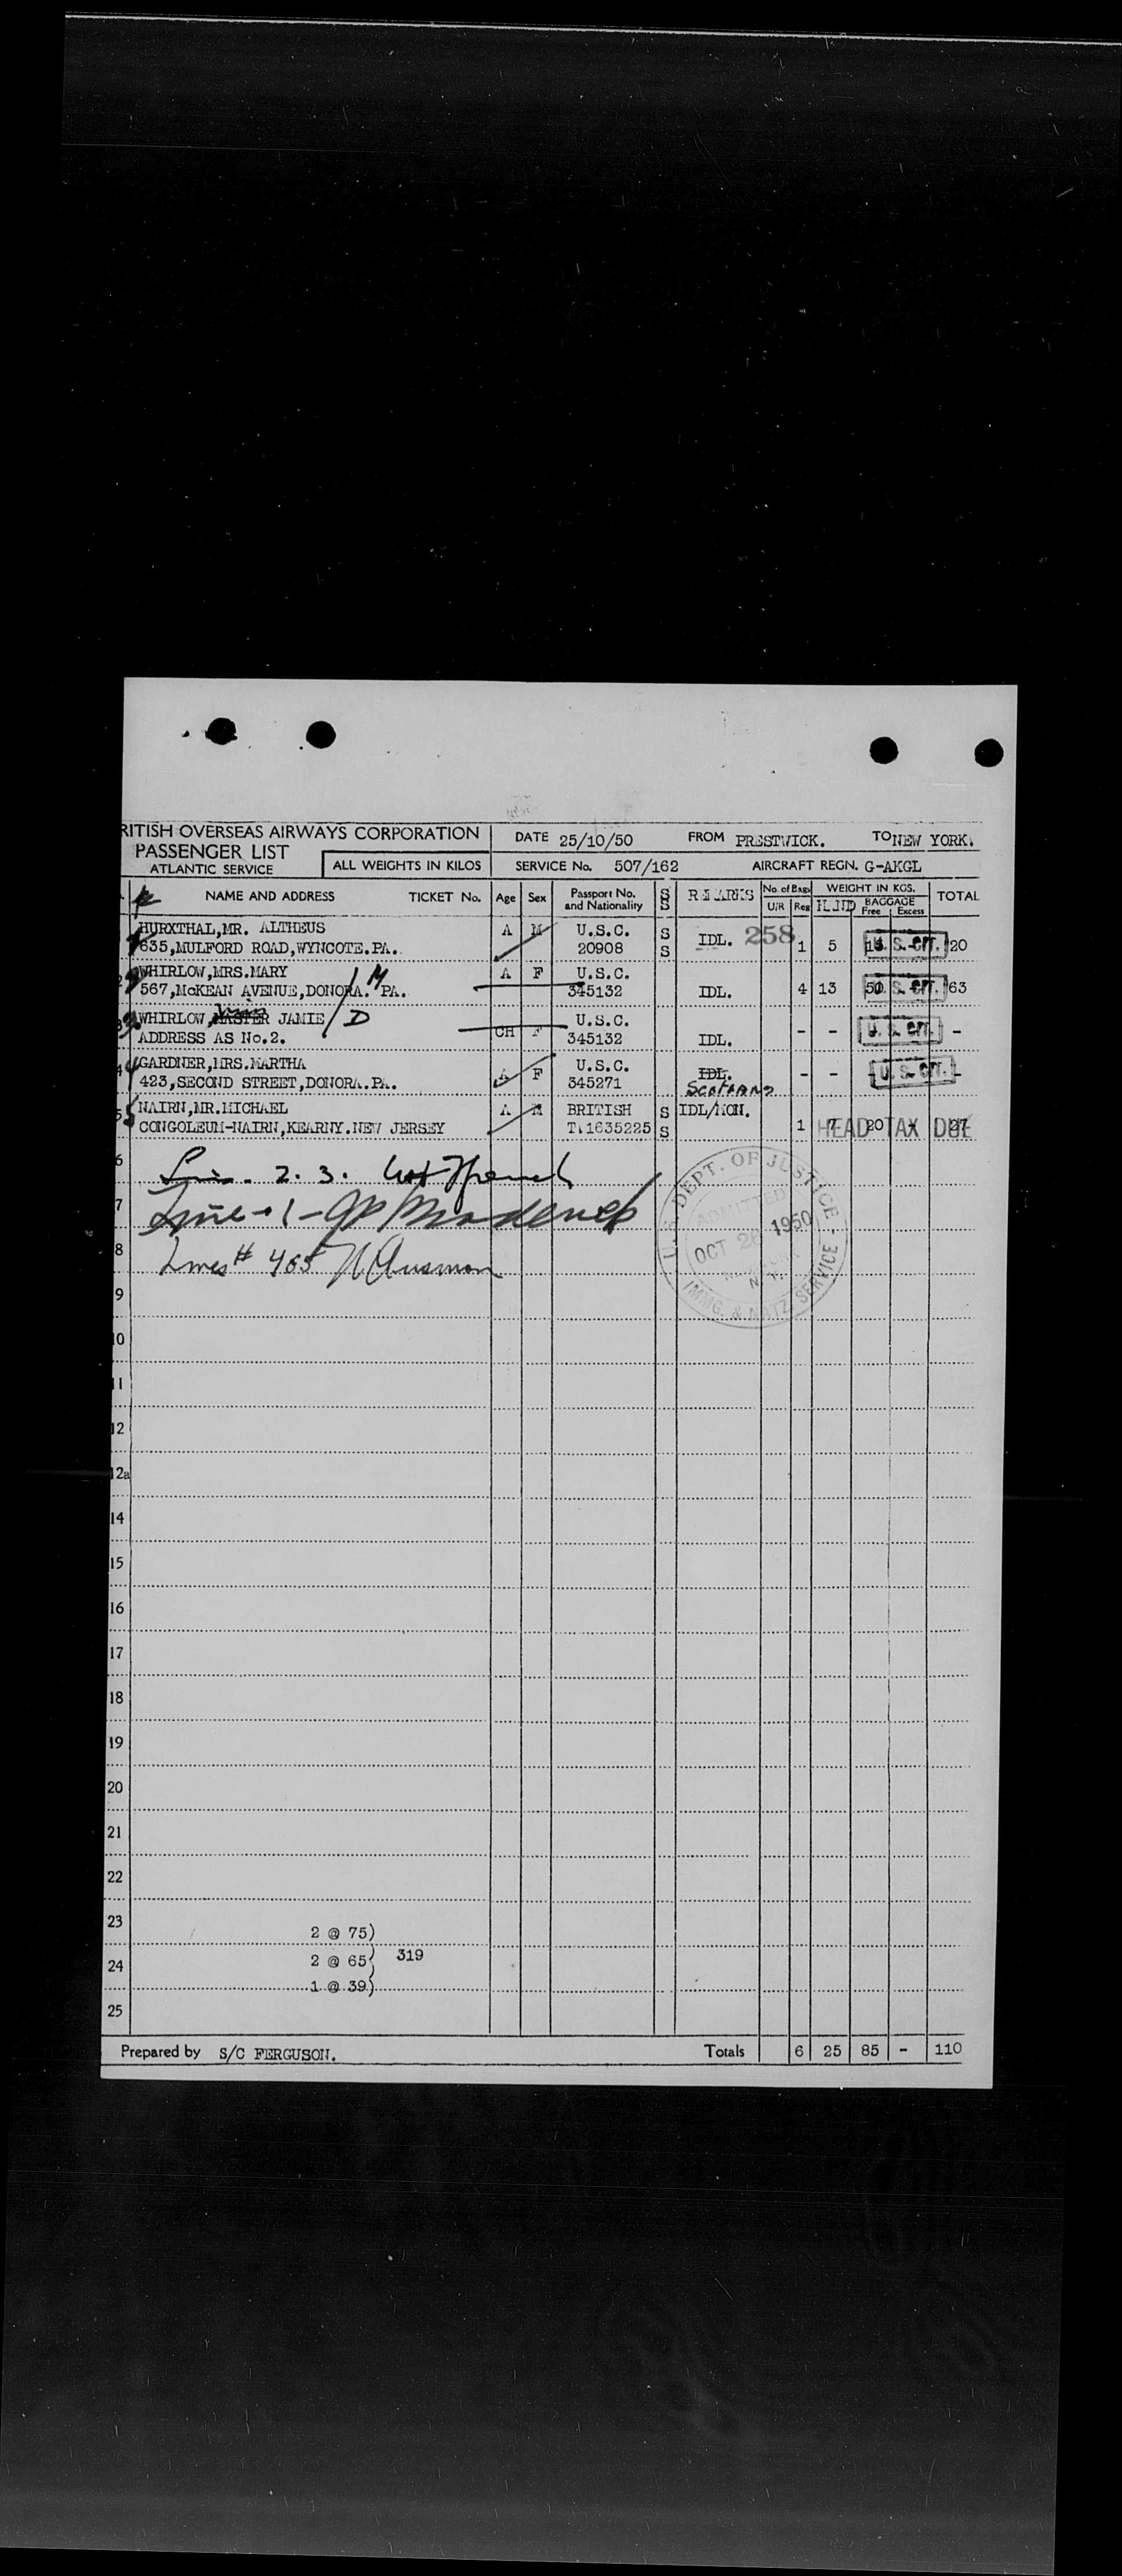 RITISH OVERSEAS AIRWAYS CORPORATION
PASSENGER LIST
ATLANTIC SERVICE
ALL WEIGHTS IN KILOS
DATE 25/10/50 FROM PRESTWICK. TO NEW YORK.
SERVICE No. 507/162 AIRCRAFT REGN. G-AKGL
NAME AND ADDRESS TICKET No. Age Sex Passport No. and Nationality S S REMARKS No. of Bags U/R Reg WEIGHT IN KGS. HAND BAGGAGE Free Excess TOTAL
HURXTHAL,MR. ALTHEUS A M U.S.C. S
635,MULFORD ROAD,WYNCOTE.PA. 20908 S IDL. 258 1 5 15 U.S. CIT. 20
2 WHIRLOW,MRS.MARY M A F U.S.C.
567,McKEAN AVENUE,DONORA. PA. 345132 IDL. 4 13 50 U.S. CIT. 63
3 WHIRLOW, MASTER JAMIE / D CH F U.S.C.
ADDRESS AS No.2. 345132 IDL. - - U.S. CIT. -
4 GARDNER,MRS.MARTHA A F U.S.C.
423,SECOND STREET,DONORA.PA. 345271 IDL. - - U.S. CIT. -
5 NAIRN,MR.MICHAEL A M BRITISH S IDL/MON.
CONGOLEUM-NAIRN,KEARNY.NEW JERSEY T.1635225 S 1 7 20 - 27
HEAD TAX DUE
6
2. 3.
7
Line - 1 -
8
Lines # 4 & 5
U.S. DEPT. OF JUSTICE
ADMITTED
OCT 26 1950
NEW YORK
N.Y.
IMMG. & NATZ. SERVICE
9
10
11
12
12a
14
15
16
17
18
19
20
21
22
23
2 @ 75)
24
2 @ 65) 319
1 @ 39)
25
Prepared by S/C FERGUSON. Totals 6 25 85 - 110